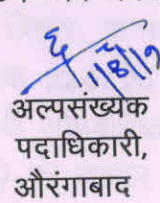 1/8/19
अल्पसंख्यक
पदाधिकारी,
औरंगाबाद